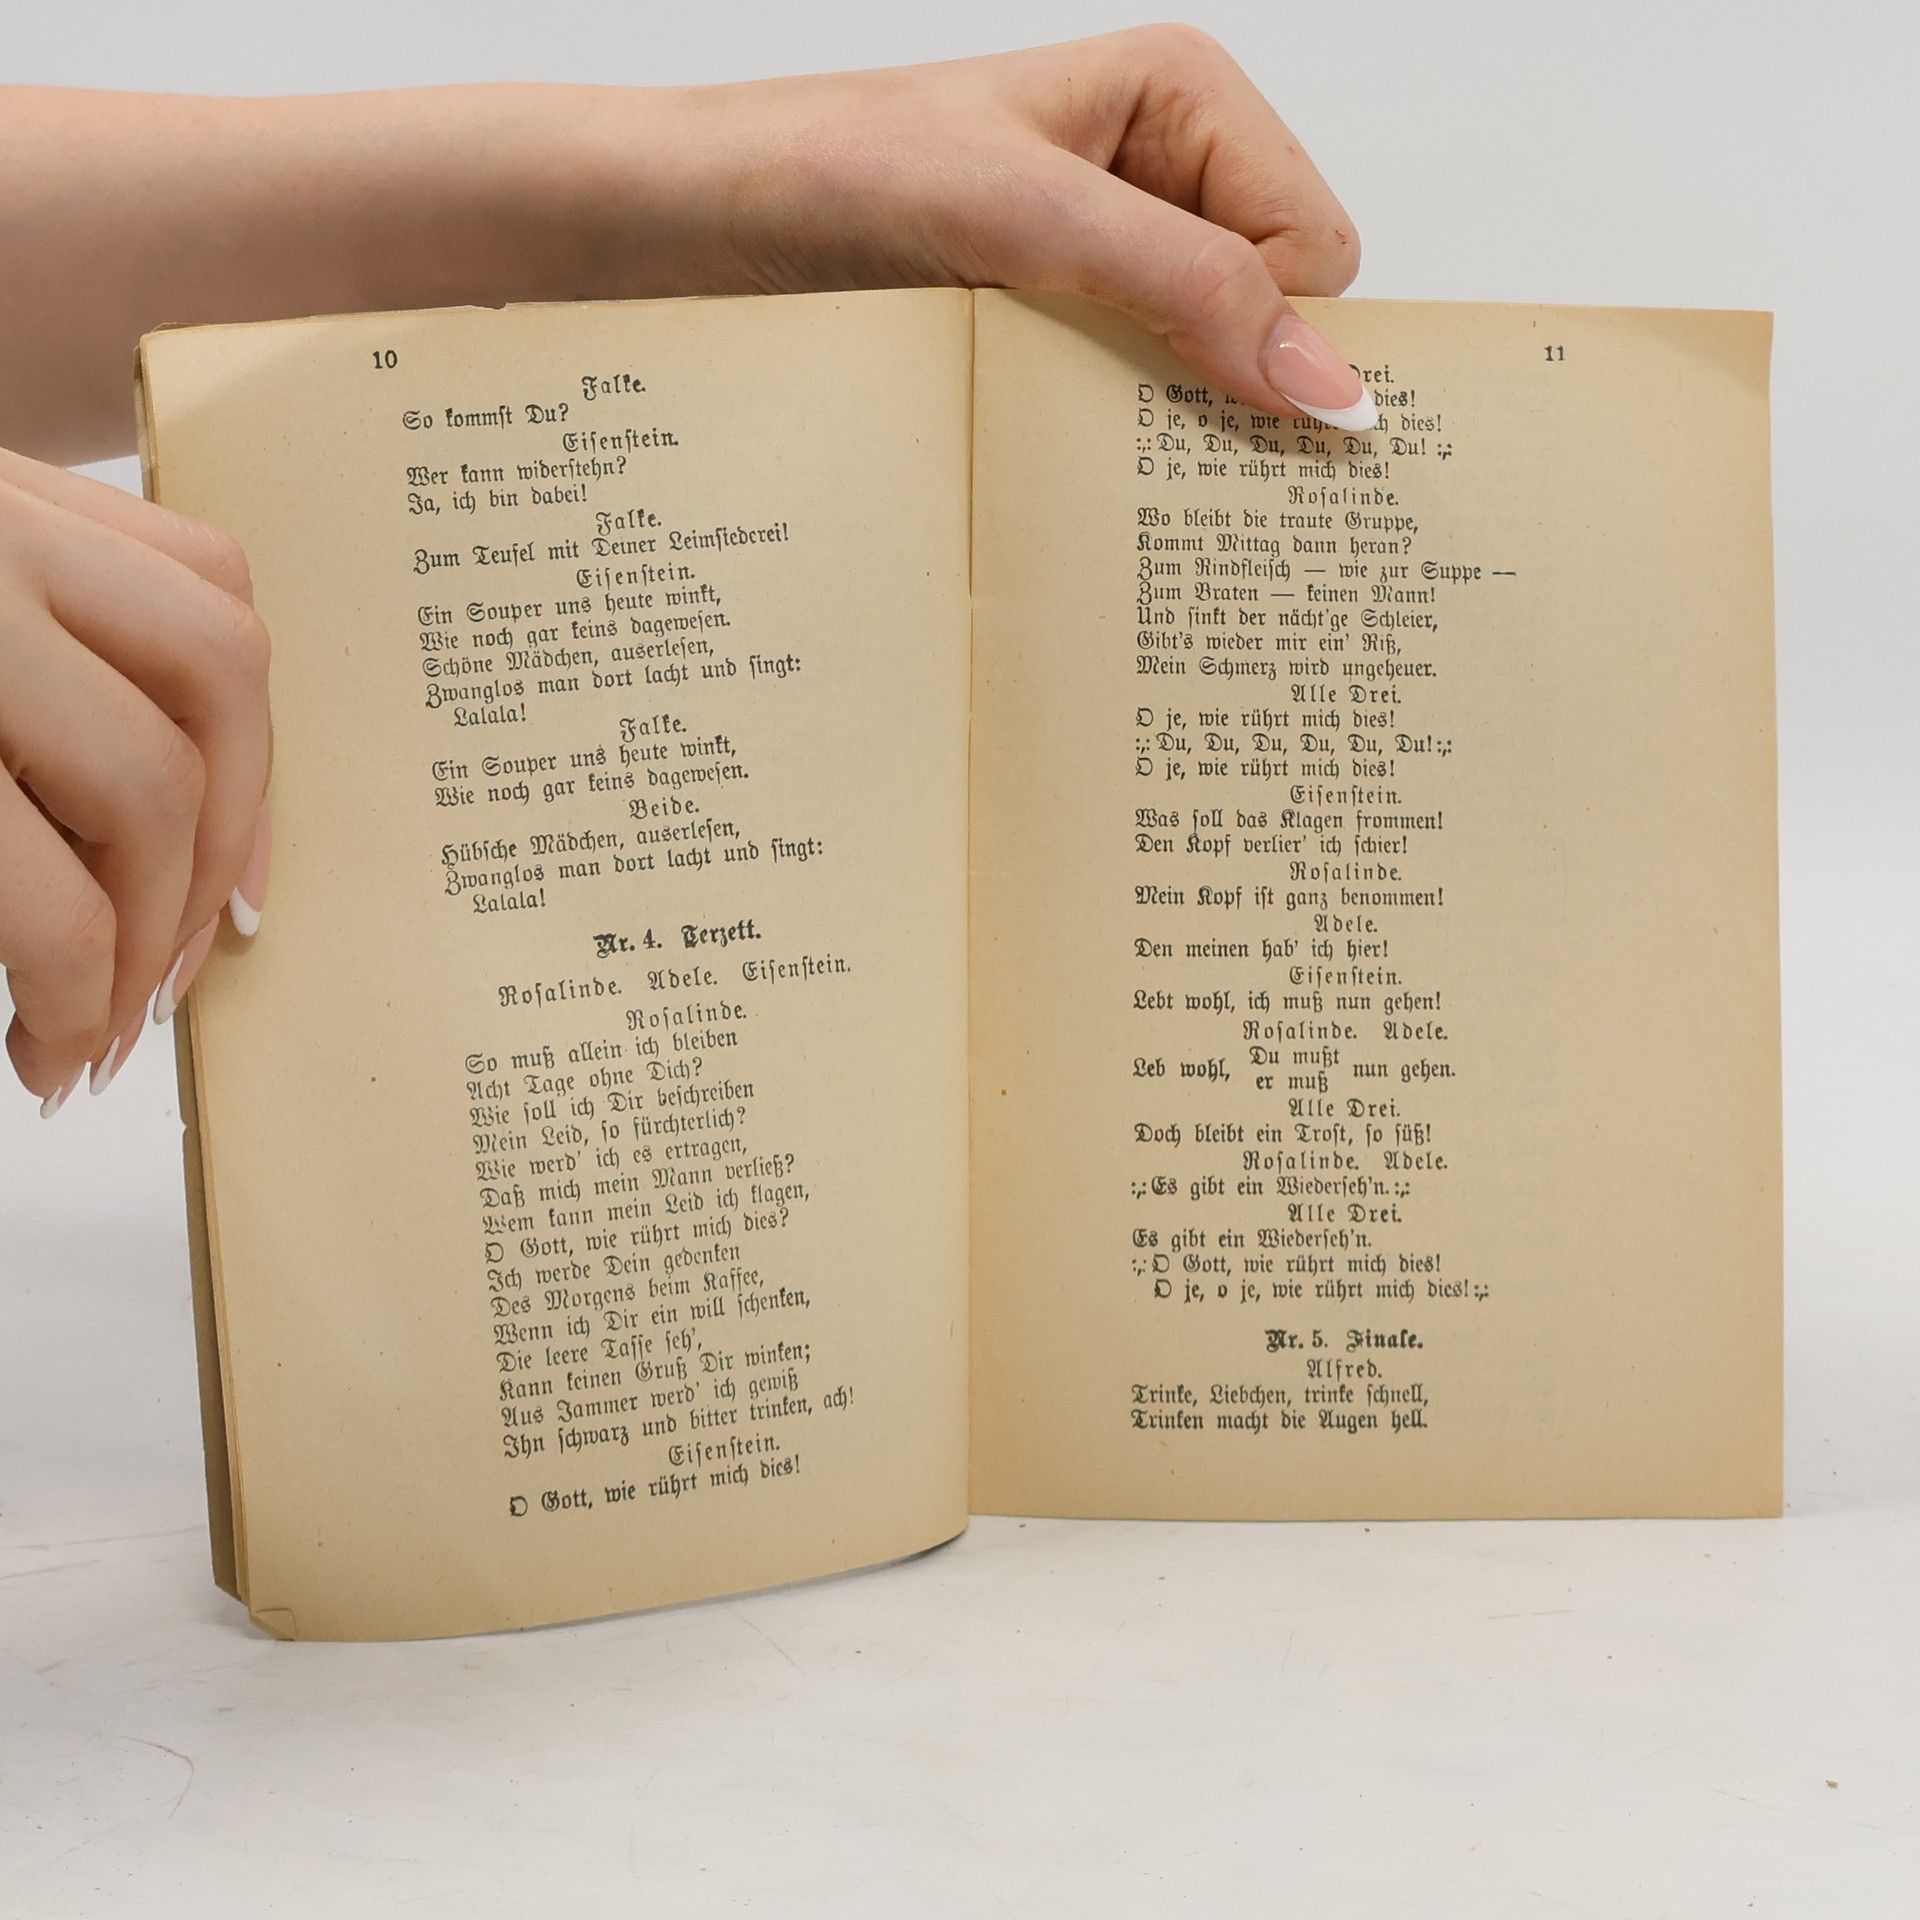 10
Falke.
So kommst Du?
Eisenstein.
Wer kann widerstehn?
Ja, ich bin dabei!
Falke.
Zum Teufel mit Deiner Leimsiederei!
Eisenstein.
Ein Souper uns heute winkt,
Wie noch gar keins dagewesen.
Schöne Mädchen, auserlesen,
Zwanglos man dort lacht und singt:
Lalala!
Falke.
Ein Souper uns heute winkt,
Wie noch gar keins dagewesen.
Beide.
Hübsche Mädchen, auserlesen,
Zwanglos man dort lacht und singt:
Lalala!
Nr. 4. Terzett.
Rosalinde. Adele. Eisenstein.
Rosalinde.
So muß allein ich bleiben
Acht Tage ohne Dich?
Wie soll ich Dir beschreiben
Mein Leid, so fürchterlich?
Wie werd' ich es ertragen,
Daß mich mein Mann verließ?
Wem kann mein Leid ich klagen,
O Gott, wie rührt mich dies?
Ich werde Dein gedenken
Des Morgens beim Kaffee,
Wenn ich Dir ein will schenken,
Die leere Tasse seh',
Kann keinen Gruß Dir winken;
Aus Jammer werd' ich gewiß
Ihn schwarz und bitter trinken, ach!
Eisenstein.
O Gott, wie rührt mich dies!
11
Drei.
O Gott, dies!
O je, o je, wie rührt mich dies!
:,: Du, Du, Du, Du, Du, Du! :,:
O je, wie rührt mich dies!
Rosalinde.
Wo bleibt die traute Gruppe,
Kommt Mittag dann heran?
Zum Rindfleisch — wie zur Suppe —
Zum Braten — keinen Mann!
Und sinkt der nächt'ge Schleier,
Gibt's wieder mir ein' Riß,
Mein Schmerz wird ungeheuer.
Alle Drei.
O je, wie rührt mich dies!
:,: Du, Du, Du, Du, Du, Du! :,:
O je, wie rührt mich dies!
Eisenstein.
Was soll das Klagen frommen!
Den Kopf verlier' ich schier!
Rosalinde.
Mein Kopf ist ganz benommen!
Adele.
Den meinen hab' ich hier!
Eisenstein.
Lebt wohl, ich muß nun gehen!
Rosalinde. Adele.
Leb wohl, Du mußt nun gehen.
er muß
Alle Drei.
Doch bleibt ein Trost, so süß!
Rosalinde. Adele.
:,: Es gibt ein Wiederseh'n. :,:
Alle Drei.
Es gibt ein Wiederseh'n.
:,: O Gott, wie rührt mich dies!
O je, o je, wie rührt mich dies! :,:
Nr. 5. Finale.
Alfred.
Trinke, Liebchen, trinke schnell,
Trinken macht die Augen hell.